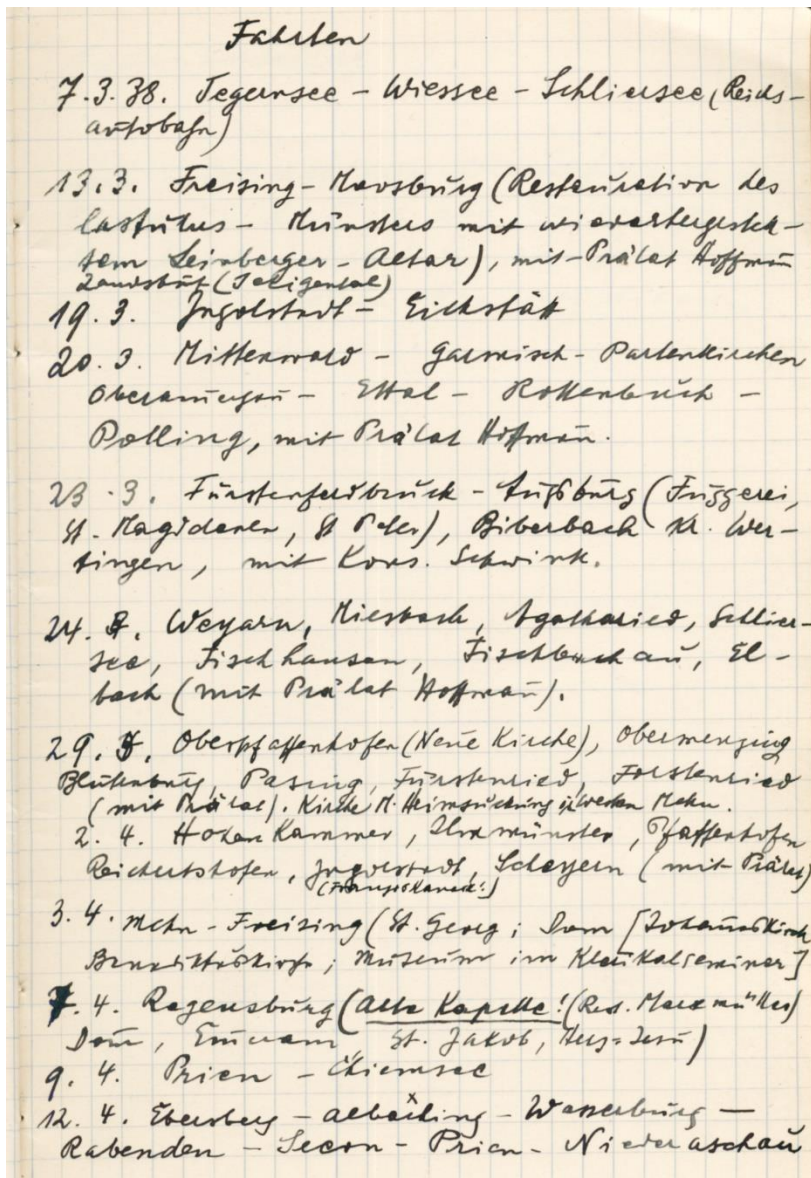 Fahrten
7.3.38. Tegernsee - Wiessee - Schliersee (Reichs-
autobahn)
13.3. Freising - Moosburg (Restauration des
Castulus - Münsters mit wiederhergestell-
tem Leinberger - Altar), mit Prälat Hoffman̅
Landshut (Seligental)
19.3. Ingolstadt - Eichstätt
20.3. Mittenwald - Garmisch - Partenkirchen
Oberam̅ergau - Ettal - Rottenbuch -
Polling, mit Prälat Hoffman̅.
23.3. Fürstenfeldbruck - Augsburg (Fuggerei,
St. Magdalenen, St Peter), Biberbach Kr. Wer-
tingen, mit Kons. Schwink.
24. Weyarn, Miesbach, Agatharied, Schlier-
see, Fischhausen, Fischbachau, El-
bach (mit Prälat Hoffman̅).
29. Oberpfaffenhofen (Neue Kirche), Obermenzing
Blutenburg, Pasing, Fürstenried, Forstenried
(mit Prälat). Kirche M. Heimsuchung i. Westen Mchn.
2. 4. Hohenkammer, Ilmmünster, Pfaffenhofen
Reichertshofen, Ingolstadt, Scheyern (mit Prälat)
(Franziskaner!)
3. 4. Mchn - Freising (St. Georg; Dom [Johanneskirch
Benediktuskirche; Museum im Klerikalseminar]
7. 4. Regensburg (Alte Kapelle! (Rest.
Dom, Em̅eram St. Jakob, Herz=Jesu)
9. 4. Prien - Chiemsee
12. 4. Ebersberg - Albaching - Wasserburg -
Rabenden - Seeon - Prien - Niederaschau